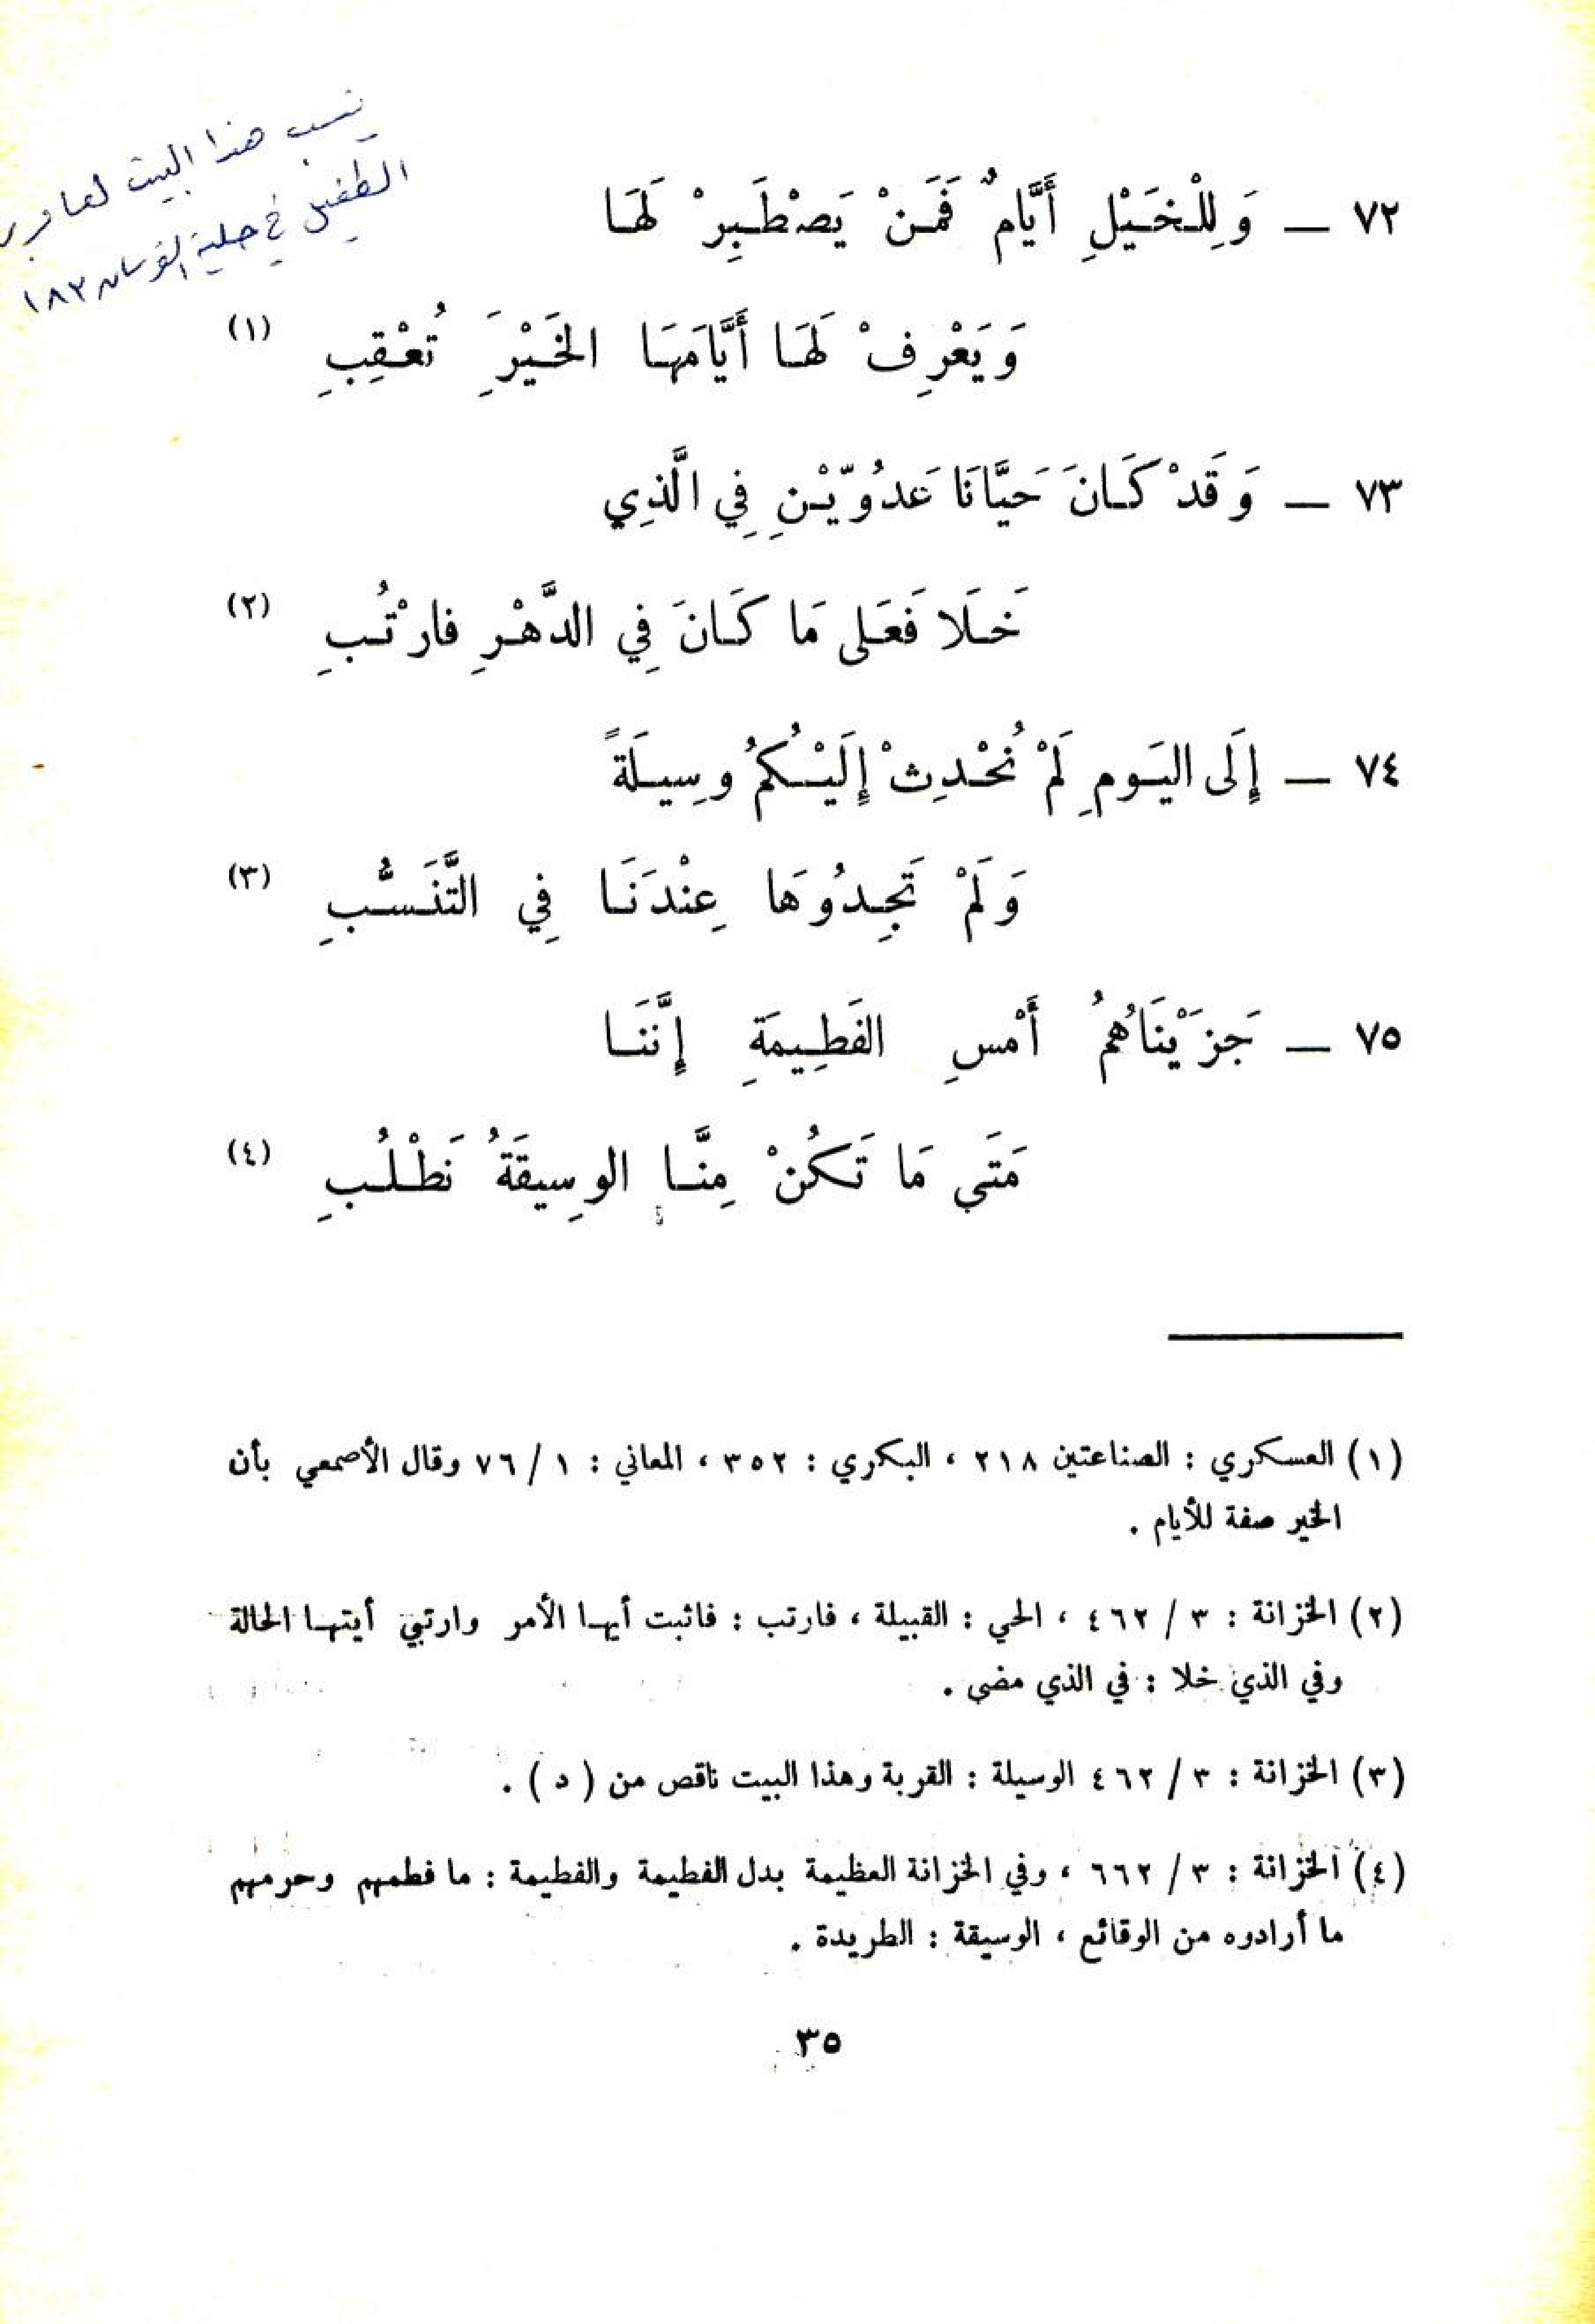 ينسب هذا البيت لعامر بن
الطفيل في حلية الفرسان ١٨٣
٧٢ — وَلِلْخَيْلِ أَيَّامٌ فَمَنْ يَصْطَبِرْ لَهَا
وَيَعْرِفْ لَهَا أَيَّامَهَا الخَيْرَِ تُعْقِبِ (١)
٧٣ — وَقَدْ كَانَ حَيَّانَا عَدُوَّيْنِ فِي الَّذِي
خَلَا فَعَلى مَا كَانَ فِي الدَّهْرِ فارْتُبِ (٢)
٧٤ — إِلَى اليَومِ لَمْ نُحْدِثْ إِلَيْكُمُ وسِيلَةً
وَلَمْ تَجِدُوَها عِنْدَنَا فِي التَّنَسُّبِ (٣)
٧٥ — جَزَيْنَاهُمُ أَمْسِ الفَطِيمَةِ إِنَّنَا
مَتَى مَا تَكُنْ مِنَّا الوسِيقَةُ نَطْلُبِ (٤)
(١) العسكري : الصناعتين ٢١٨ ، البكري : ٣٥٢ ، المعاني : ١ / ٧٦ وقال الأصمعي بأن
الخير صفة للأيام .
(٢) الخزانة : ٣ / ٤٦٢ ، الحي : القبيلة ، فارتب : فاثبت أيها الأمر وارتبي أيتها الحالة
وفي الذي خلا : في الذي مضى .
(٣) الخزانة : ٣ / ٤٦٢ الوسيلة : القربة وهذا البيت ناقص من ( د ) .
(٤) الخزانة : ٣ / ٦٦٢ ، وفي الخزانة العظيمة بدل الفطيمة والفطيمة : ما فطمهم وحرمهم
ما أرادوه من الوقائع ، الوسيقة : الطريدة .
٣٥